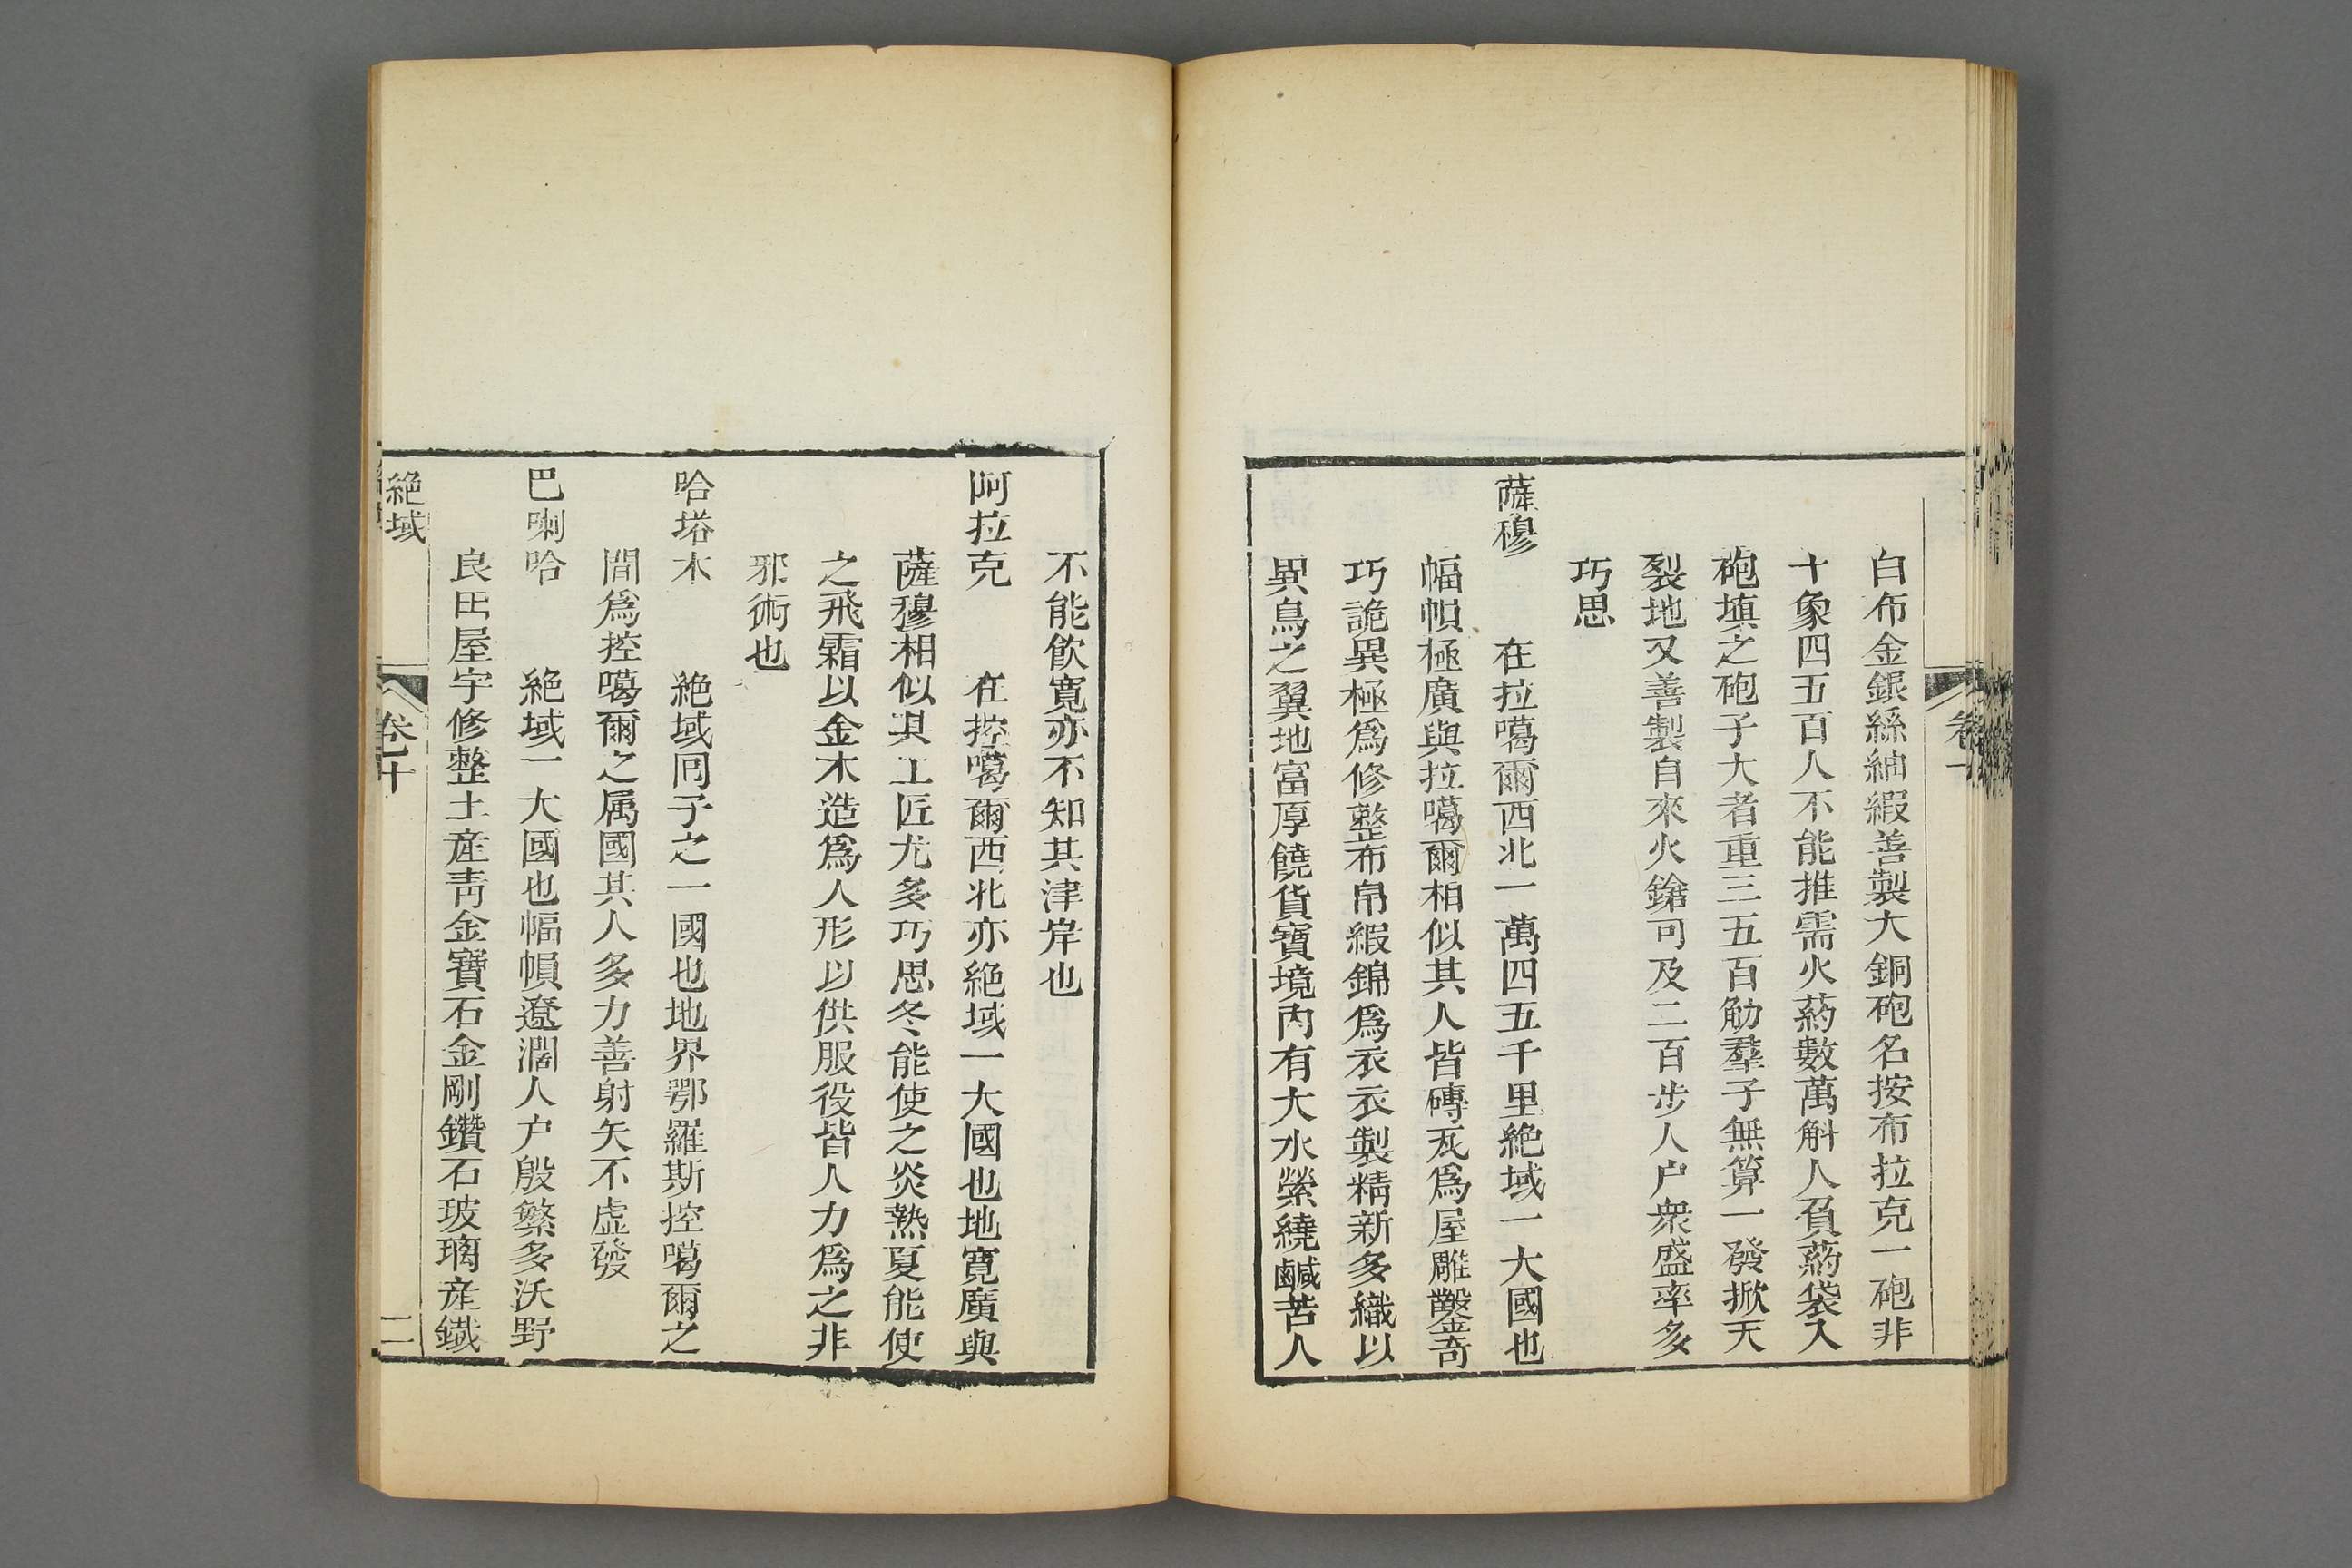 白布金銀絲紬緞善製大銅砲名按布拉克一砲非
十象四五百人不能推需火葯數萬斛人負葯袋入
砲塡之砲子大者重三五百觔羣子無算一發掀天
裂地又善製自來火鎗可及二百步人户衆盛率多
巧思
薩穆　　在拉噶爾西北一萬四五千里絶域一大國也
幅幀極廣與拉噶爾相似其人皆磚瓦爲屋雕鑿奇
巧詭異極爲修整布帛緞錦爲衣衣製精新多織以
異鳥之翼地富厚饒貨寶境内有大水縈繞鹹苦人
不能飲寬亦不知其津岸也
阿拉克　　在控噶爾西北亦絶域一大國也地寬廣與
薩穆相似其工匠尤多巧思冬能使之炎熱夏能使
之飛霜以金木造爲人形以供服役皆人力爲之非
邪術也
哈塔木　　絶域囘子之一國也地界鄂羅斯控噶爾之
間爲控噶爾之属國其人多力善射矢不虛發
巴喇哈　　絶域一大國也幅幀遼濶人户殷繁多沃野
良田屋宇修整土産靑金寶石金剛鑽石玻璃産鐵
絶域　卷十　二